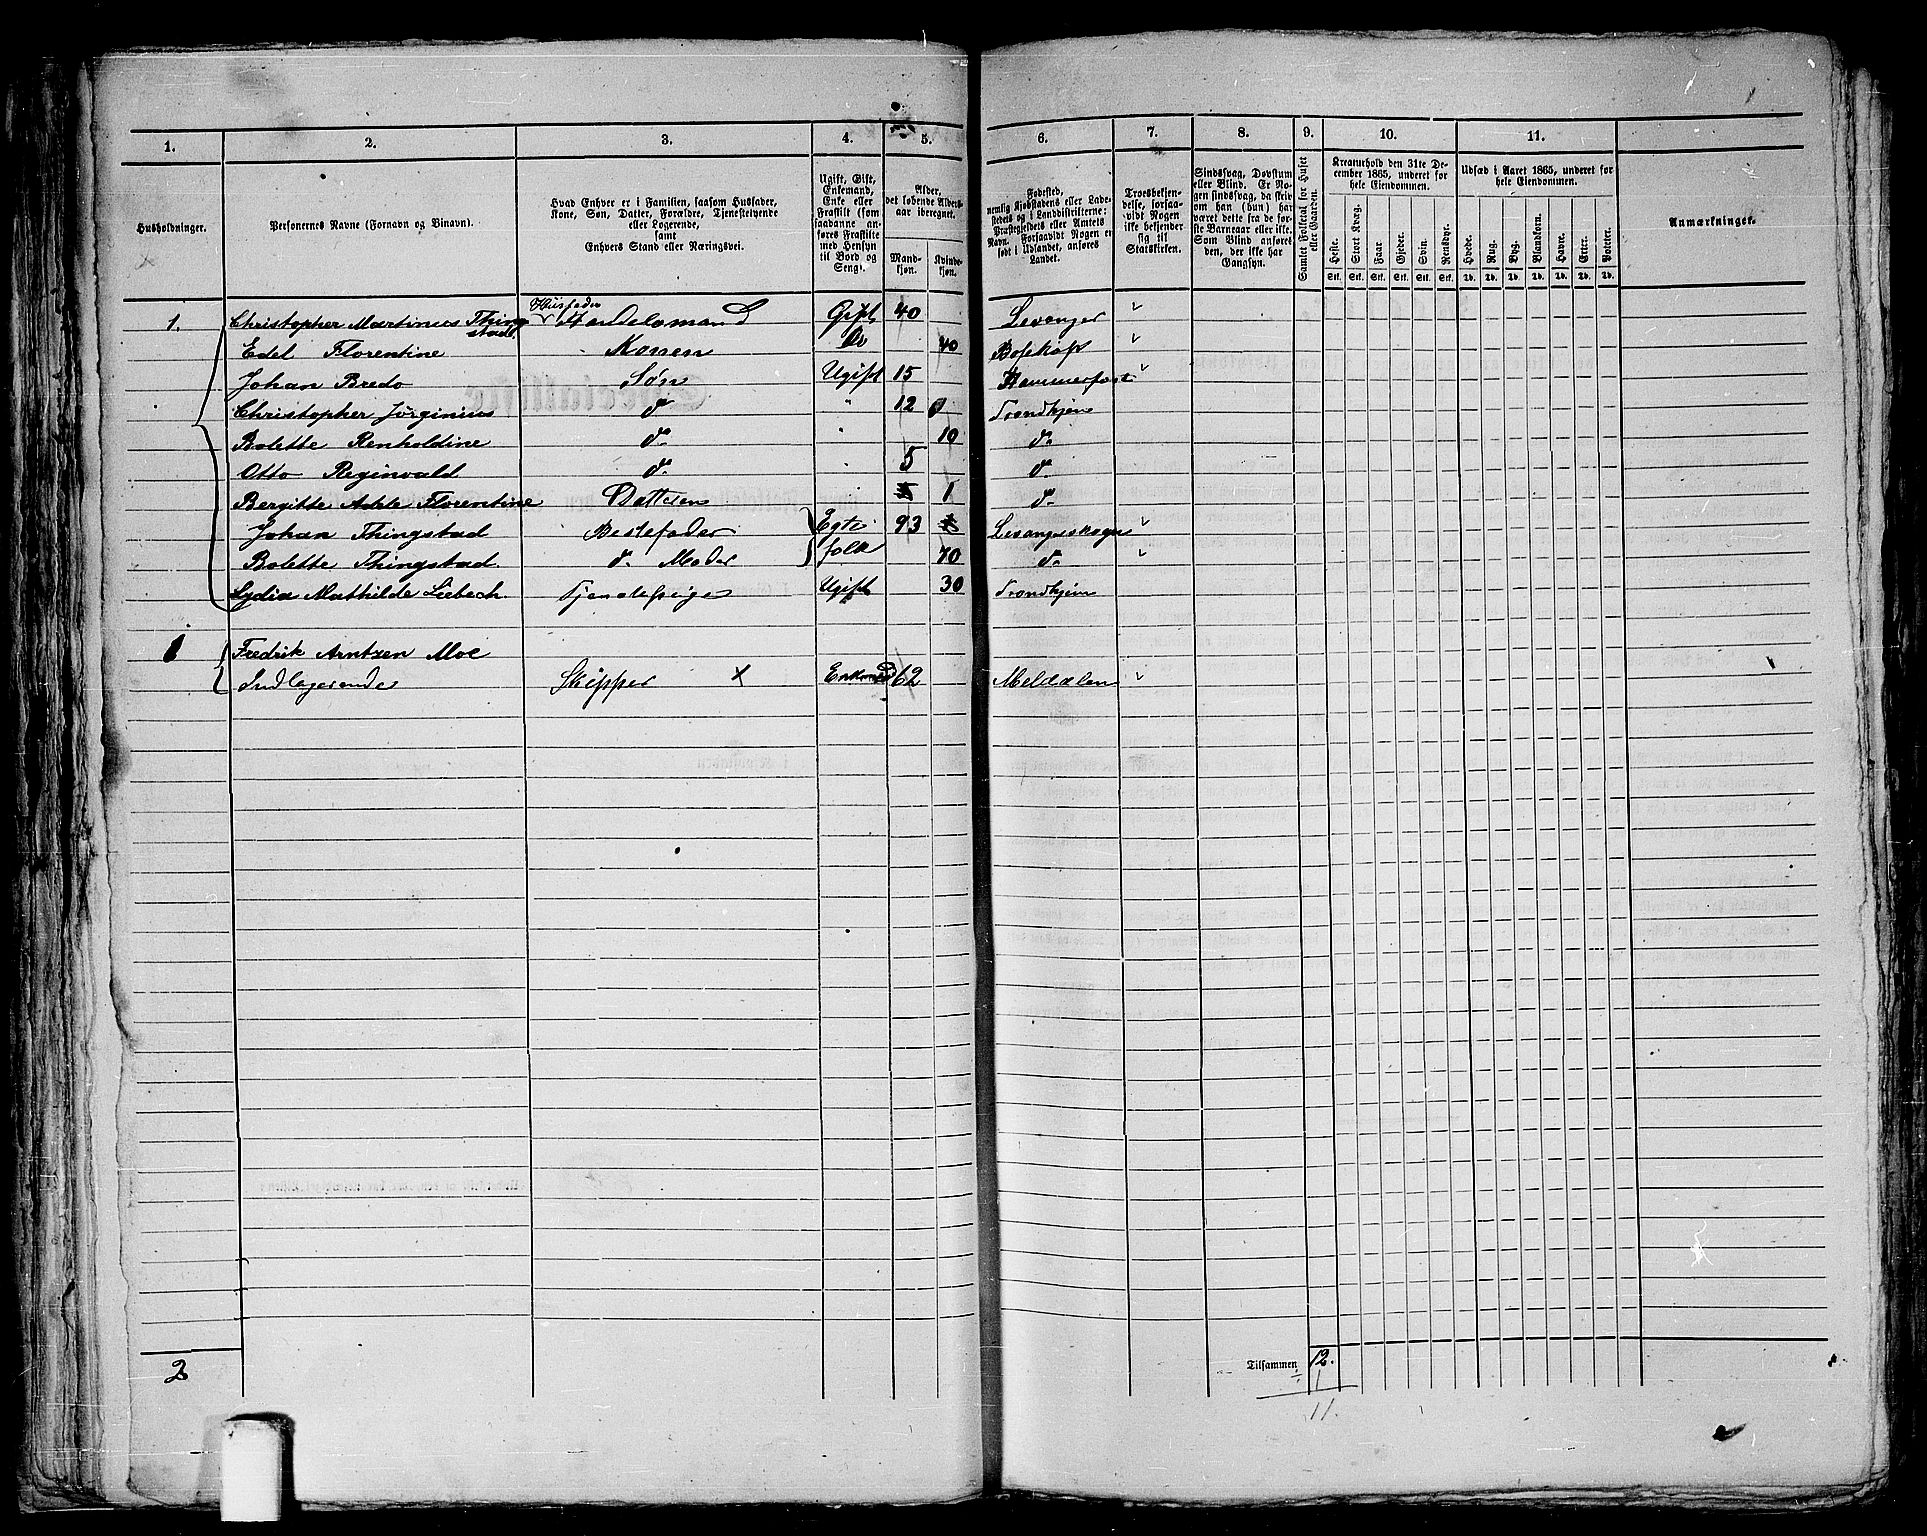 1. 2. 3. 4. 5. 6. 7. 8. 9. 10. 11.
Husholdninger.
Personernes Navne (Fornavn og Binavn).
Hvad Enhver er i Familien, saasom Husfader,
Kone, Søn, Datter, Forældre, Tjenestetyende
eller Logerende,
samt
Enhvers Stand eller Næringsvei.
Ugift, Gift,
Enkemand,
Enke eller
Fraskilt (som
saadanne an-
føres Fraskilte
med Hensyn
til Bord og
Seng).
Alder,
det løbende Alders-
aar iberegnet.
Mand-
kjøn.
Kvinde-
kjøn.
Fødested,
nemlig Kjøbstadens eller Lade-
stedets og i Landdistrikterne:
Præstegjeldets eller Amtets
Navn. Forsaavidt Nogen er
født i Udlandet, anføres
Landet.
Troesbekjen-
delse, forsaa-
vidt Nogen
ikke bekjender
sig til
Statskirken.
Sindssvag, Døvstum
eller Blind. Er No-
gen sindssvag, da skriv
om han (hun) har
været dette fra de før-
ste Barneaar eller ikke.
Som Blind anføres
den, der ikke har
Gangsyn.
Samlet Folketal for Huset
eller Gaarden.
Kreaturhold den 31te De-
cember 1865, underet for
hele Eiendommen.
Heste. Stort Kvæg. Faar. Gjeder. Svin. Rensdyr.
Stk. Stk. Stk. Stk. Stk. Stk.
Udsæd i Aaret 1865, underet for
hele Eiendommen.
Hvede. Rug. Byg. Blandkorn. Havre. Erter. Poteter.
Td. Td. Td. Td. Td. Td. Td.
Anmærkninger.
Husfader
1. Christopher Martinus Thing Handelsmand Gift 40 Levanger
stad.
Edel Florentine Konen Do 40 Bosekop
Johan Bredo Søn Ugift 15 Hammerfest
Christopher Jørginius do 12 Trondhjem
Bolette Renholdine do 10 do
Otto Reginvald do 5 do
Bergitte Adele Florentine Datteren 1 do
Johan Thingstad Bestefader Egte 93 Levangerskogn
Bolette Thingstad do Moder folk 70 do
Lydia Mathilde Liebech. Tjenestepige Ugift 30 Trondhjem
1 Fredrik Arntzen Moe
Indlogerende Skipper × Enkmd 62 Meldalen
2 Tilsammen 12.
÷ 1
11.